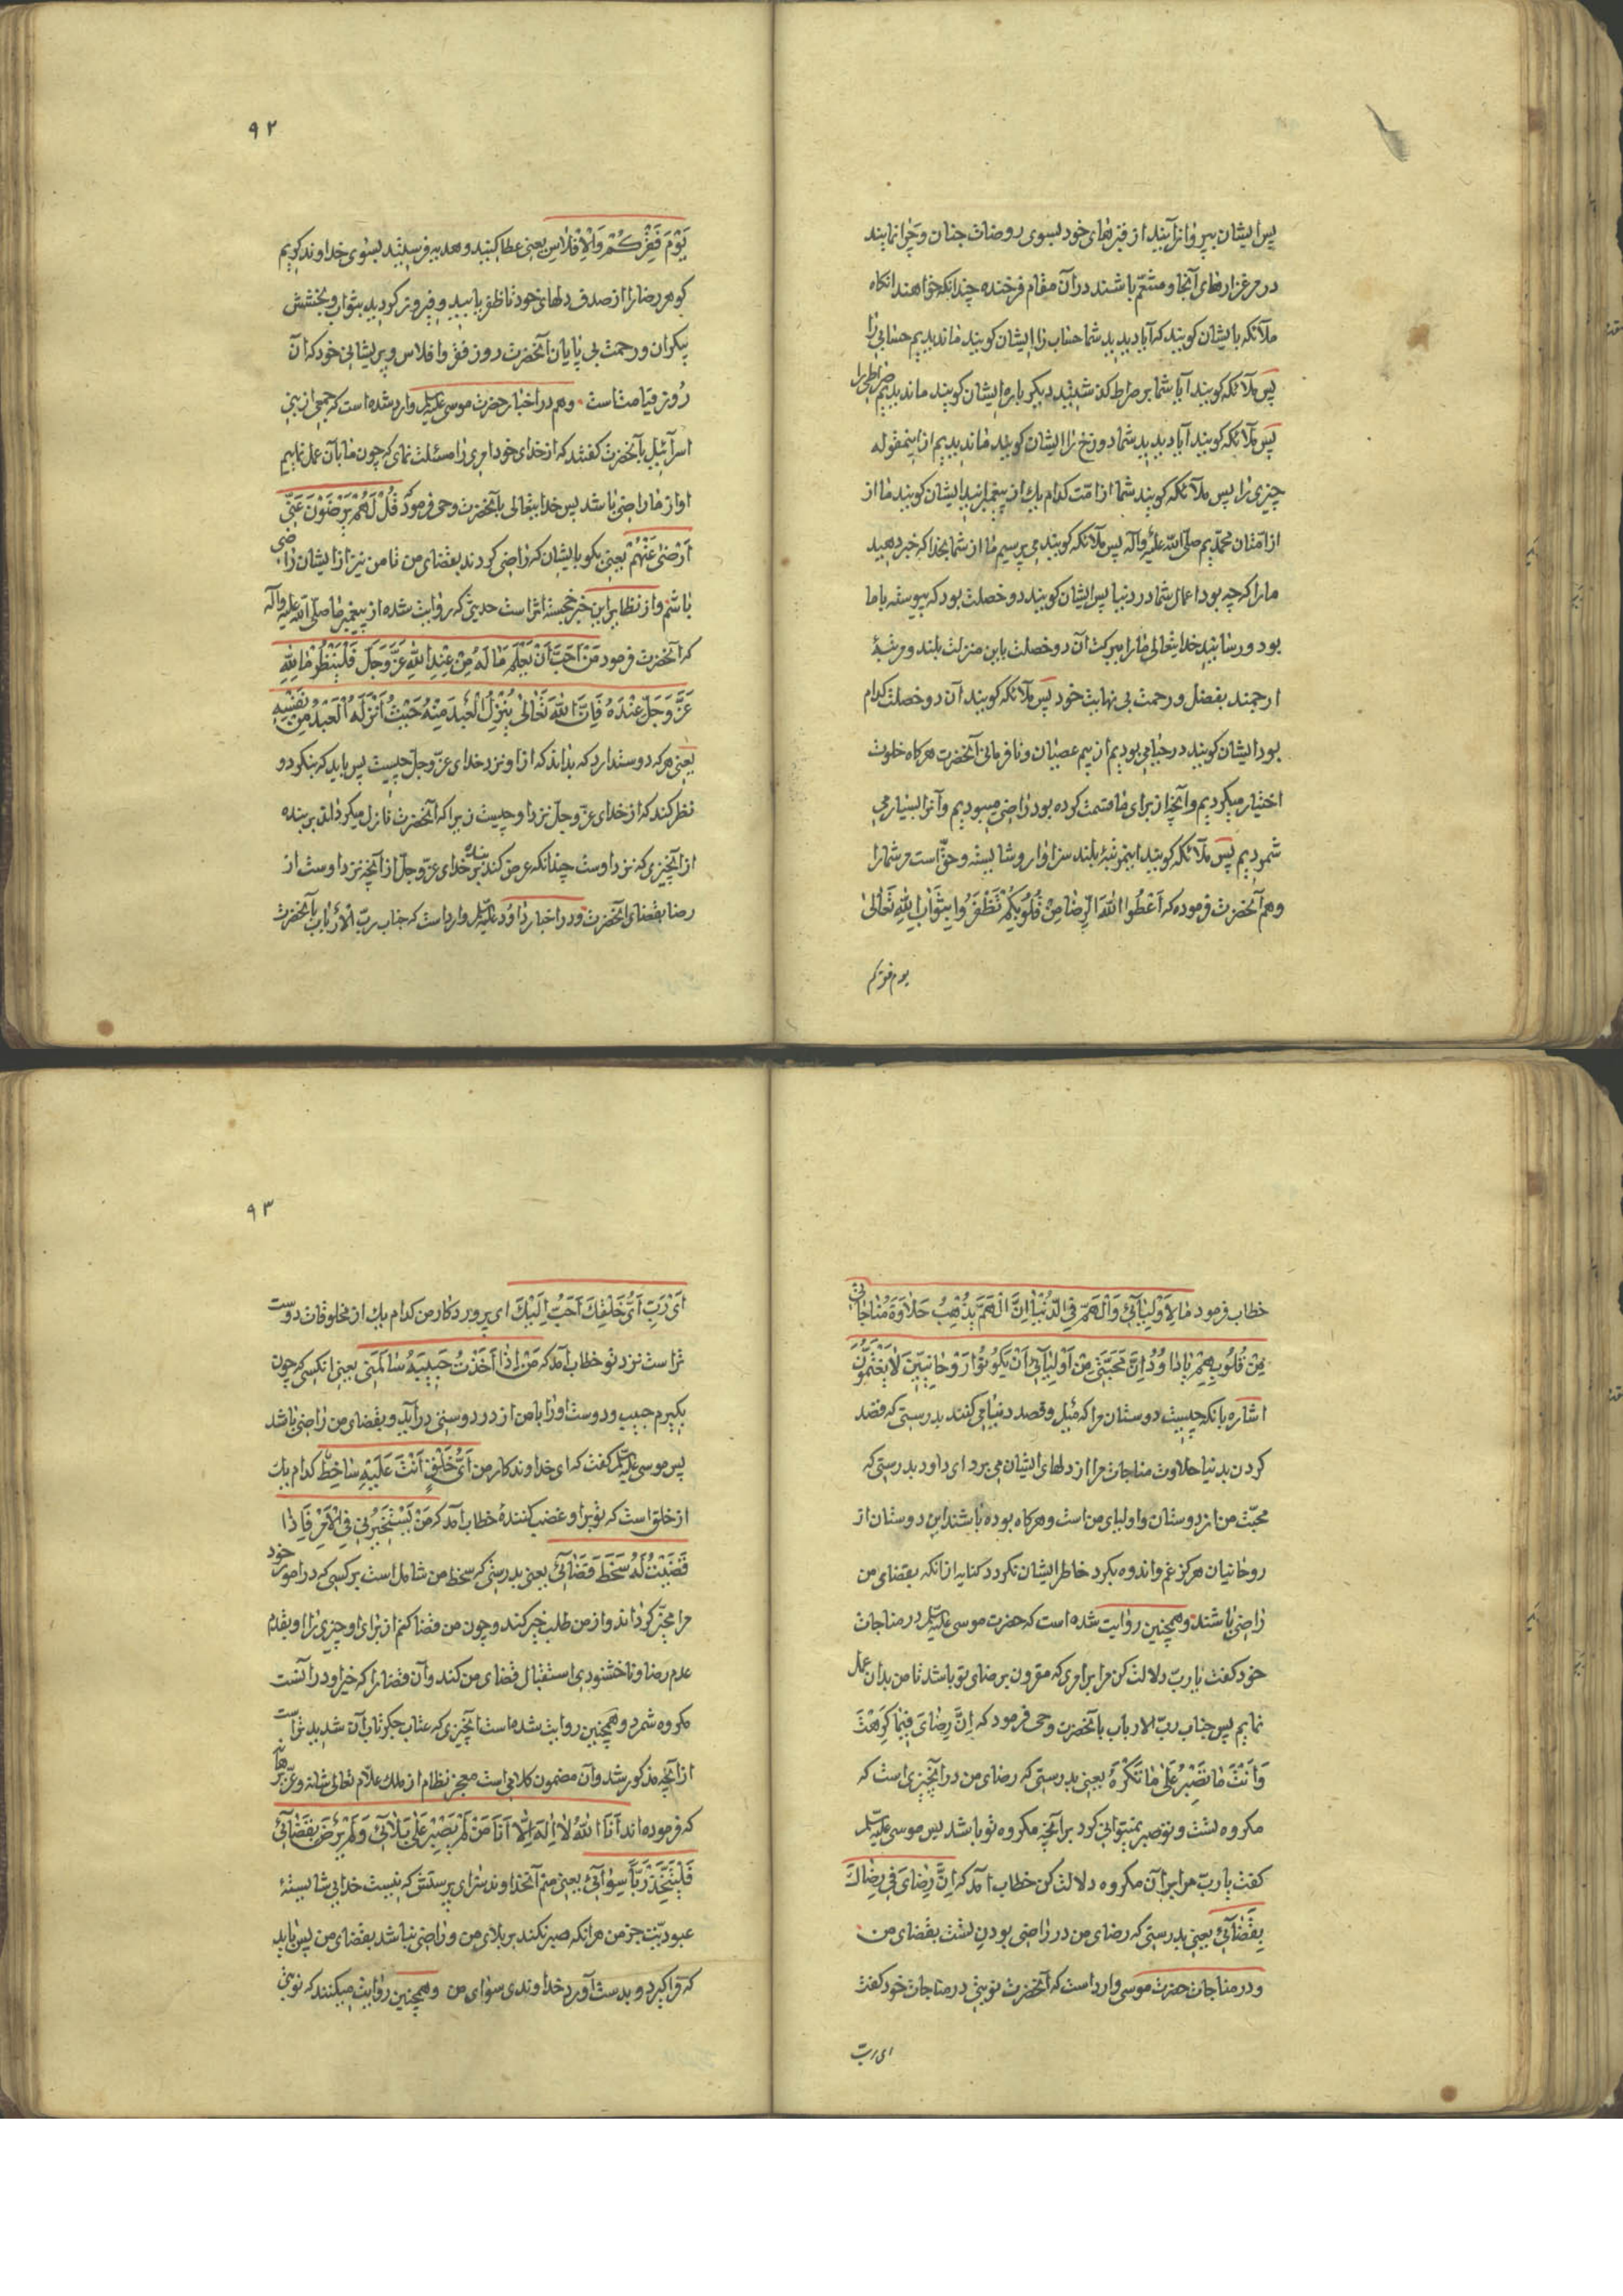 پس ایشان بپرواز آیند از قبرهای خود بسوی روضات جنان و چرا نمایند
در مرغزارهای آنجا و متنعّم باشند در آن مقام فرخنده چندانکه خواهند انکاه
ملآئکه بایشان کویند که آیا دیدید شما حساب را ایشان کویند ما ندیدیم حسابی را
پس ملآئکه کویند آیا شما بر صراط کذشتید دیکر باره ایشان کویند ما ندیدیم صراطی را
پس ملآئکه کویند آیا دیدید شما دوزخ را ایشان کویند ما ندیدیم از اینمقوله
چیزی را پس ملآئکه کویند شما از امّت کدام یك از پیغمبرانید ایشان کویند ما از
از امّتان محمّدیم صلّی اللّه علیه وآله پس ملآئکه کویند می پرسیم ما از شما بخدا که خبر دهید
مارا که چه بود اعمال شما در دنیا پس ایشان کویند دو خصلت بود که پیوسته با ما
بود و رسانید خدایتعالی ما را ببرکت آن دو خصلت باین منزلت بلند و مرتبهٔ
ارجمند بفضل و رحمت بی نهایت خود پس ملآئکه کویند آن دو خصلت کدام
بود ایشان کویند در حیا می بودیم از بیم عصیان و نافرمانی آنحضرت هرکاه خلوت
اختیار میکردیم و آنچه از برای ما قسمت کرده بود راضی میبودیم و آنرا بسیار می
شمردیم پس ملآئکه کویند اینمرتبهٔ بلند سزاوار و شایسته و حقّ است مر شما را
وهم آنحضرت فرموده که اَعْطُوا اللّٰهَ الرِّضٰا مِنْ قُلُوبِكُمْ تَظْفَرُوا بِثَوٰابِ اللّٰهِ تَعٰالیٰ
یوم فقرکم
٩٢
يَوْمَ فَقْرِكُمْ وَالْاِفْلٰاسِ یعنی عطا کنید و هدیه فرستید بسوی خداوند کریم
کوهر رضا را از صدف دلهای خود تا ظفر یابید و فیروز کردید بثواب و بخشش
بیکران و رحمت بی پایان آنحضرت روز فقر و افلاس و پریشانی خود که آن
روز قیامت است وهم در اخبار حضرت موسی علیه السّلم وارد شده است که جمعی از بنی
اسرآئیل بآنحضرت کفتند که از خدای خود امری را مسئلت نمای که چون ما بآن عمل نماییم
او از ما راضی باشد پس خدایتعالی بآنحضرت وحی فرمود که قُلْ لَهُمْ يَرْضَوْنَ عَنّي
اَرْضیٰ عَنْهُمْ یعنی بکو بایشان که راضی کردند بقضای من تا من نیز از ایشان راضی
باشم و از نظایر این خبر خجسته اثر است حدیثی که روایت شده از پیغمبر ما صلّی اللّه علیه وآله
که آنحضرت فرمود مَنْ اَحَبَّ اَنْ يَعْلَمَ مٰا لَهُ مِنْ عِنْدِ اللّٰهِ عَزَّ وَجَلَّ فَلْيَنْظُرْ مٰا لِلّٰهِ
عَزَّ وَجَلَّ عِنْدَهُ فَاِنَّ اللّٰهَ تَعٰالیٰ يُنْزِلُ الْعَبْدَ مِنْهُ حَيْثُ اَنْزَلَهُ الْعَبْدُ مِنْ نَفْسِهِ
یعنی هر که دوست دارد که بداند که از او نزد خدای عزّ وجلّ چیست پس باید که بنکرد و
نظر کند که از خدای عزّ وجلّ نزد او چیست زیرا که آنحضرت نازل میکرداند بر بنده
از آنچیزی که نزد اوست چندانکه عرض کند بنده بر خدای عزّ وجلّ از آنچه نزد اوست از
رضا بقضای آنحضرت و در اخبار داود علیه السّلم وارد است که جناب ربّ الارباب بآنحضرت
خطاب فرمود مٰا لِاَوْلِيٰآئي وَالْهَمَّ فِي الدُّنْيٰا اِنَّ الْهَمَّ يُذْهِبُ حَلٰاوَةَ مُنٰاجٰاتي
مِنْ قُلُوبِهِمْ يٰا دٰاوُدُ اِنَّ مَحَبَّتي مِنْ اَوْلِيٰآئي اَنْ يَكُونُوا رَوْحٰانِيّينَ لٰا يَغْتَمُّونَ
اشاره بآنکه چیست دوستان مرا که میل و قصد دنیا می کنند بدرستی که قصد
کردن بدنیا حلاوت مناجات مرا از دلهای ایشان می برد ای داود بدرستی که
محبّت من از دوستان و اولیای من است و هرکاه بوده باشند این دوستان از
روحانیان هرکز غم و اندوه بکرد خاطر ایشان نکردد کنایه از انکه بقضای من
راضی باشند وهمچنین روایت شده است که حضرت موسی علیه السّلم در مناجات
خود کفت یا ربّ دلالت کن مرا بر امری که مقرون برضای تو باشد تا من بدان عمل
نمایم پس جناب ربّ الارباب بآنحضرت وحی فرمود که اِنَّ رِضٰايَ فيمٰا كَرِهْتَ
وَاَنْتَ مٰا تَصْبِرُ عَلیٰ مٰا تَكْرَهُ یعنی بدرستی که رضای من در آنچیزی است که
مکروه تست و تو صبر نمیتوانی کرد بر آنچه مکروه تو باشد پس موسی علیه السّلم
کفت یا ربّ مرا بر آن مکروه دلالت کن خطاب آمد که اِنَّ رِضٰايَ في رِضٰاكَ
بِقَضٰآئي یعنی بدرستی که رضای من در راضی بودن تست بقضای من
و در مناجات حضرت موسی وارد است که آنحضرت نوبتی در مناجات خود کفت
ای ربّ
٩٣
اَيْ رَبِّ اَيُّ خَلْقِكَ اَحَبُّ اِلَيْكَ ای پروردکار من کدام یك از مخلوقات دوست
تر است نزد تو خطاب آمد که مَنْ اِذٰا اَخَذْتُ حَبيبَهُ سٰالَمَني یعنی انکسی که چون
بکیرم حبیب و دوست او را با من از در دوستی درآید و بقضای من راضی باشد
پس موسی علیه السّلم کفت که ای خداوندکار من اَيُّ خَلْقٍ اَنْتَ عَلَيْهِ سٰاخِطٌ کدام یك
از خلق است که تو بر او غضب کنندهٔ خطاب آمد که مَنْ يَسْتَخيرُني فِي الْاَمْرِ فَاِذٰا
قَضَيْتُ لَهُ سَخَطَ قَضٰآئي یعنی بدرستی که سخط من شامل است بر کسی که در امور خود
مرا مخیّر کرداند و از من طلب خیر کند و چون من قضا کنم از برای او چیزی را او بقدم
عدم رضا و ناخشنودی استقبال قضای من کند و آن قضا را که خیر او در آنست
مکروه شمرد وهمچنین روایت شده است آنچیزی که عتاب جکرتاب آن شدیدتر است
از آنچه مذکور شد و آن مضمون کلامی است معجز نظام از ملك علّام تعالی شانه و عزّ برهانه
که فرموده اند اَنَا اللّٰهُ لٰا اِلٰهَ اِلّٰا اَنَا مَنْ لَمْ يَصْبِرْ عَلیٰ بَلٰآئي وَلَمْ يَرْضَ بِقَضٰآئي
فَلْيَتَّخِذْ رَبًّا سِوٰآئي یعنی منم آنخداوند سزای پرستش که نیست خدایی شایستهٔ
عبودیّت جز من هرانکه صبر نکند بر بلای من و راضی نباشد بقضای من پس باید
که فرا کیرد و بدست آورد خداوندی سوای من وهمچنین روایت میکنند که نوبتی